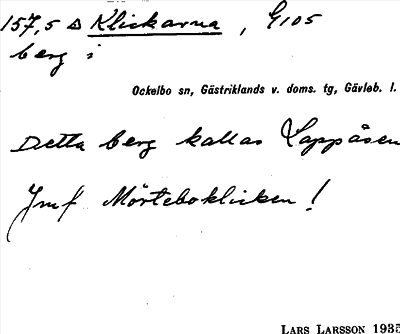 157,5 Δ Klickarna, G105
berg i
Ockelbo sn, Gästriklands v. doms. tg, Gävleb. l.
Detta berg kallas Lappåsen
Jmf Mörteboklicken!
LARS LARSSON 1935